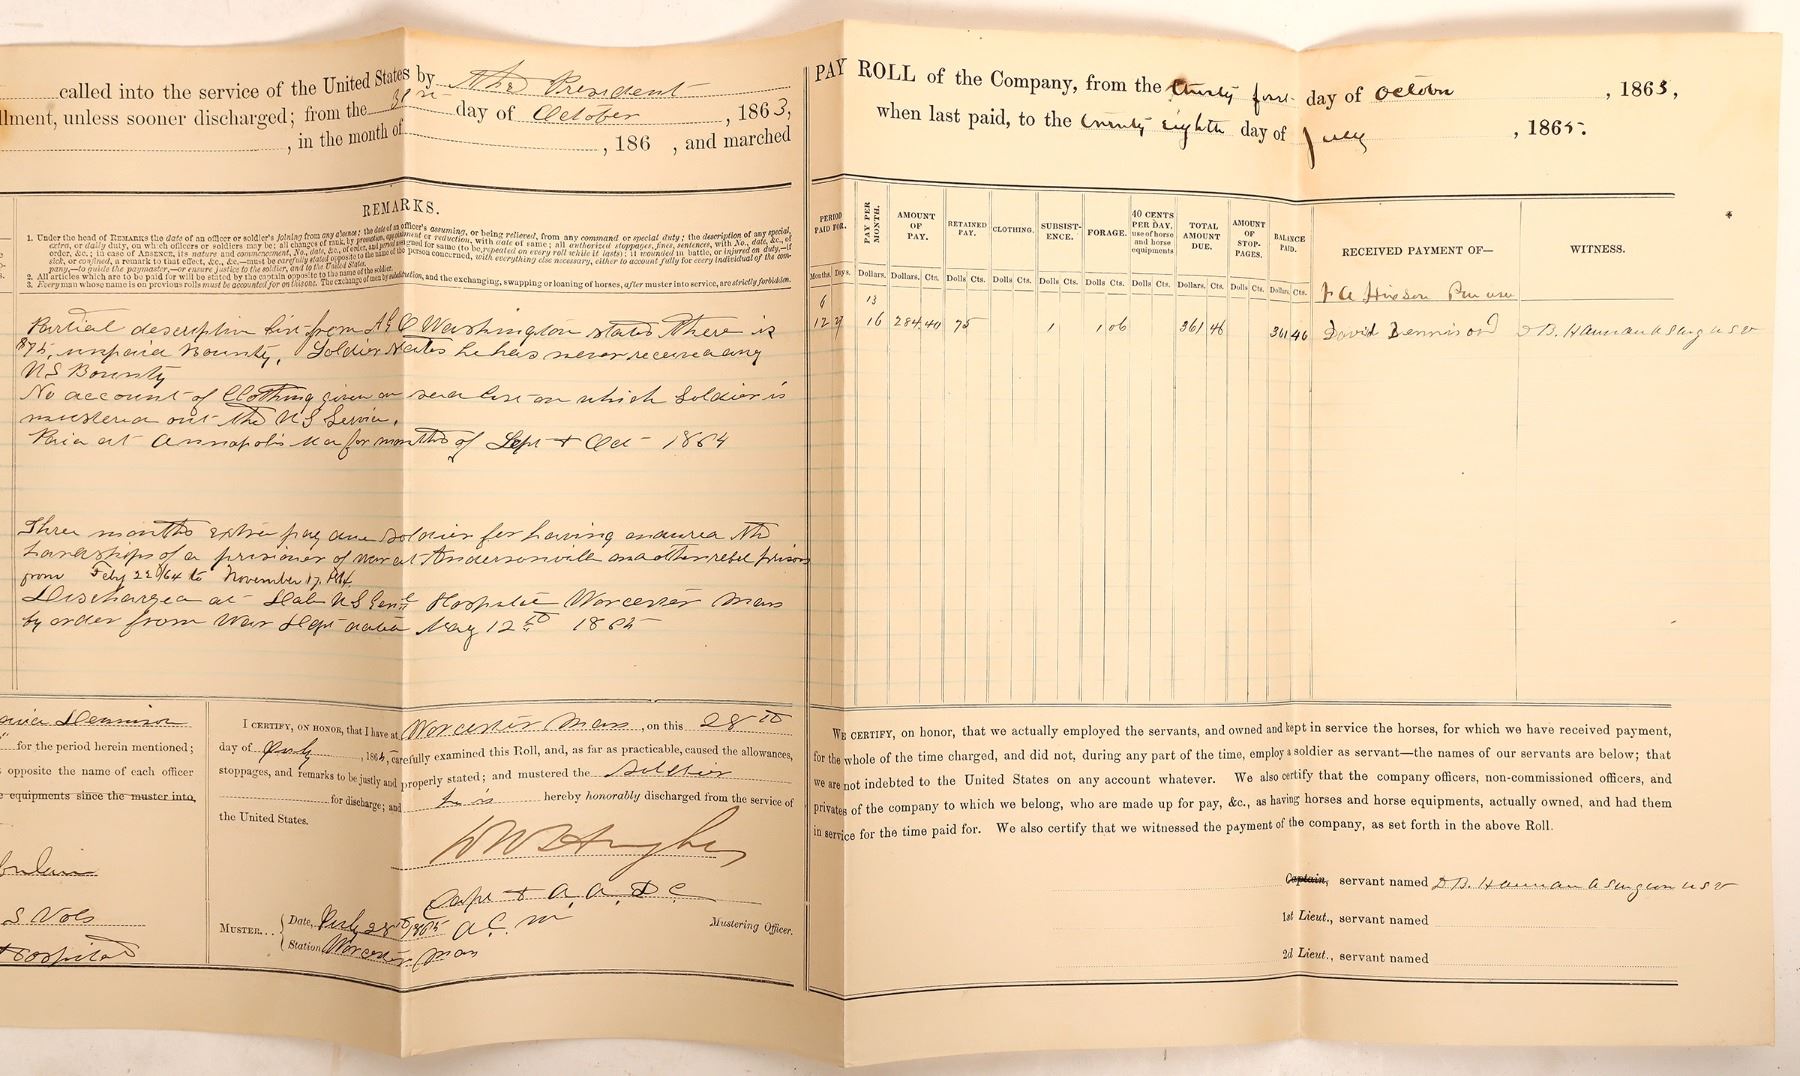 called into the service of the United States by The President
llment, unless sooner discharged; from the 31st day of October, 1863,
, in the month of , 186 , and marched
REMARKS.
1. Under the head of REMARKS the date of an officer or soldier's joining from any absence; the date of an officer's assuming, or being relieved, from any command or special duty; the description of any special,
extra, or daily duty, on which officers or soldiers may be; all changes of rank, by promotion, appointment or reduction, with date of same; all authorized stoppages, fines, sentences, with No., date, &c., of
order, &c.; in case of ABSENCE, its nature and commencement, No., date, &c., of order, and period assigned for same (to be repeated on every roll while it lasts); if wounded in battle, or injured on duty,—if
sick, or confined, a remark to that effect, &c., &c.—must be carefully stated opposite to the name of the person concerned, with everything else necessary, either to account fully for every individual of the com-
pany,—to guide the paymaster,—or ensure justice to the soldier, and to the United States.
2. All articles which are to be paid for will be stated by the captain opposite to the name of the soldier.
3. Every man whose name is on previous rolls must be accounted for on this one. The exchange of men by substitution, and the exchanging, swapping or loaning of horses, after muster into service, are strictly forbidden.
Partial descriptive list from A G O Washington states there is
$75, unpaid Bounty. Soldier states he has never received any
US Bounty
No account of Clothing given on said list on which Soldier is
mustered out the US Service.
Paid at Annapolis Md for months of Sept & Oct 1864
Three months extra pay due soldier for having endured the
hardships of a prisoner of war at Andersonville and other rebel prisons
from Feby 22d/64 to November 17, 1864
Discharged at Dale US Genl Hospital Worcester Mass
by order from War Dept dated May 12th 1865
avid Dennison
" for the period herein mentioned;
opposite the name of each officer
e equipments since the muster into,
S Vols
Hospital
I CERTIFY, ON HONOR, that I have at Worcester Mass, on this 28th
day of July, 1865, carefully examined this Roll, and, as far as practicable, caused the allowances,
stoppages, and remarks to be justly and properly stated; and mustered the soldier
for discharge; and he is hereby honorably discharged from the service of
the United States.
Capt & A. A. D. C.
A. C. M
Mustering Officer.
MUSTER... Date, July 28th 1865
Station Worcester Mass
PAY ROLL of the Company, from the thirty first day of October, 1863,
when last paid, to the twenty eighth day of July, 1865.
PERIOD PAID FOR. PAY PER MONTH. AMOUNT OF PAY. RETAINED PAY. CLOTHING. SUBSIST-ENCE. FORAGE. 40 CENTS PER DAY. use of horse and horse equipments TOTAL AMOUNT DUE. AMOUNT OF STOP-PAGES. BALANCE PAID. RECEIVED PAYMENT OF— WITNESS.
Months. Days. Dollars. Dollars. Cts. Dolls Cts. Dolls Cts. Dolls Cts. Dolls Cts. Dolls Cts. Dollars Cts. Dolls Cts. Dollars Cts.
6 13
12 27 16 284 40 75 1 1 06 361 46 361 46 David Dennison D B. Hannan A Surg U S V
WE CERTIFY, on honor, that we actually employed the servants, and owned and kept in service the horses, for which we have received payment,
for the whole of the time charged, and did not, during any part of the time, employ a soldier as servant—the names of our servants are below; that
we are not indebted to the United States on any account whatever. We also certify that the company officers, non-commissioned officers, and
privates of the company to which we belong, who are made up for pay, &c., as having horses and horse equipments, actually owned, and had them
in service for the time paid for. We also certify that we witnessed the payment of the company, as set forth in the above Roll.
Captain, servant named D B. Hannan A Surgeon U S V
1st Lieut., servant named
2d Lieut., servant named